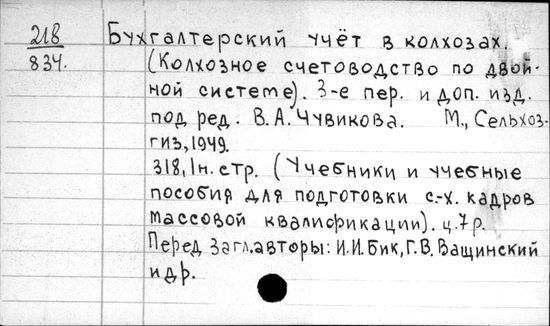 218 Бухгалтерский учёт в колхозах.
834. (Колхозное счетоводство по двой-
ной системе). 3-е пер. и доп. изд.
под ред. В.А. Чувикова. М., Сельхоз-
гиз, 1949.
318, 1н. стр. (Учебники и учебные
пособия для подготовки с.-х. кадров
массовой квалификации). ц. 7 р.
Перед загл. авторы: И.И. Бик, Г.В. Ващинский
и др.